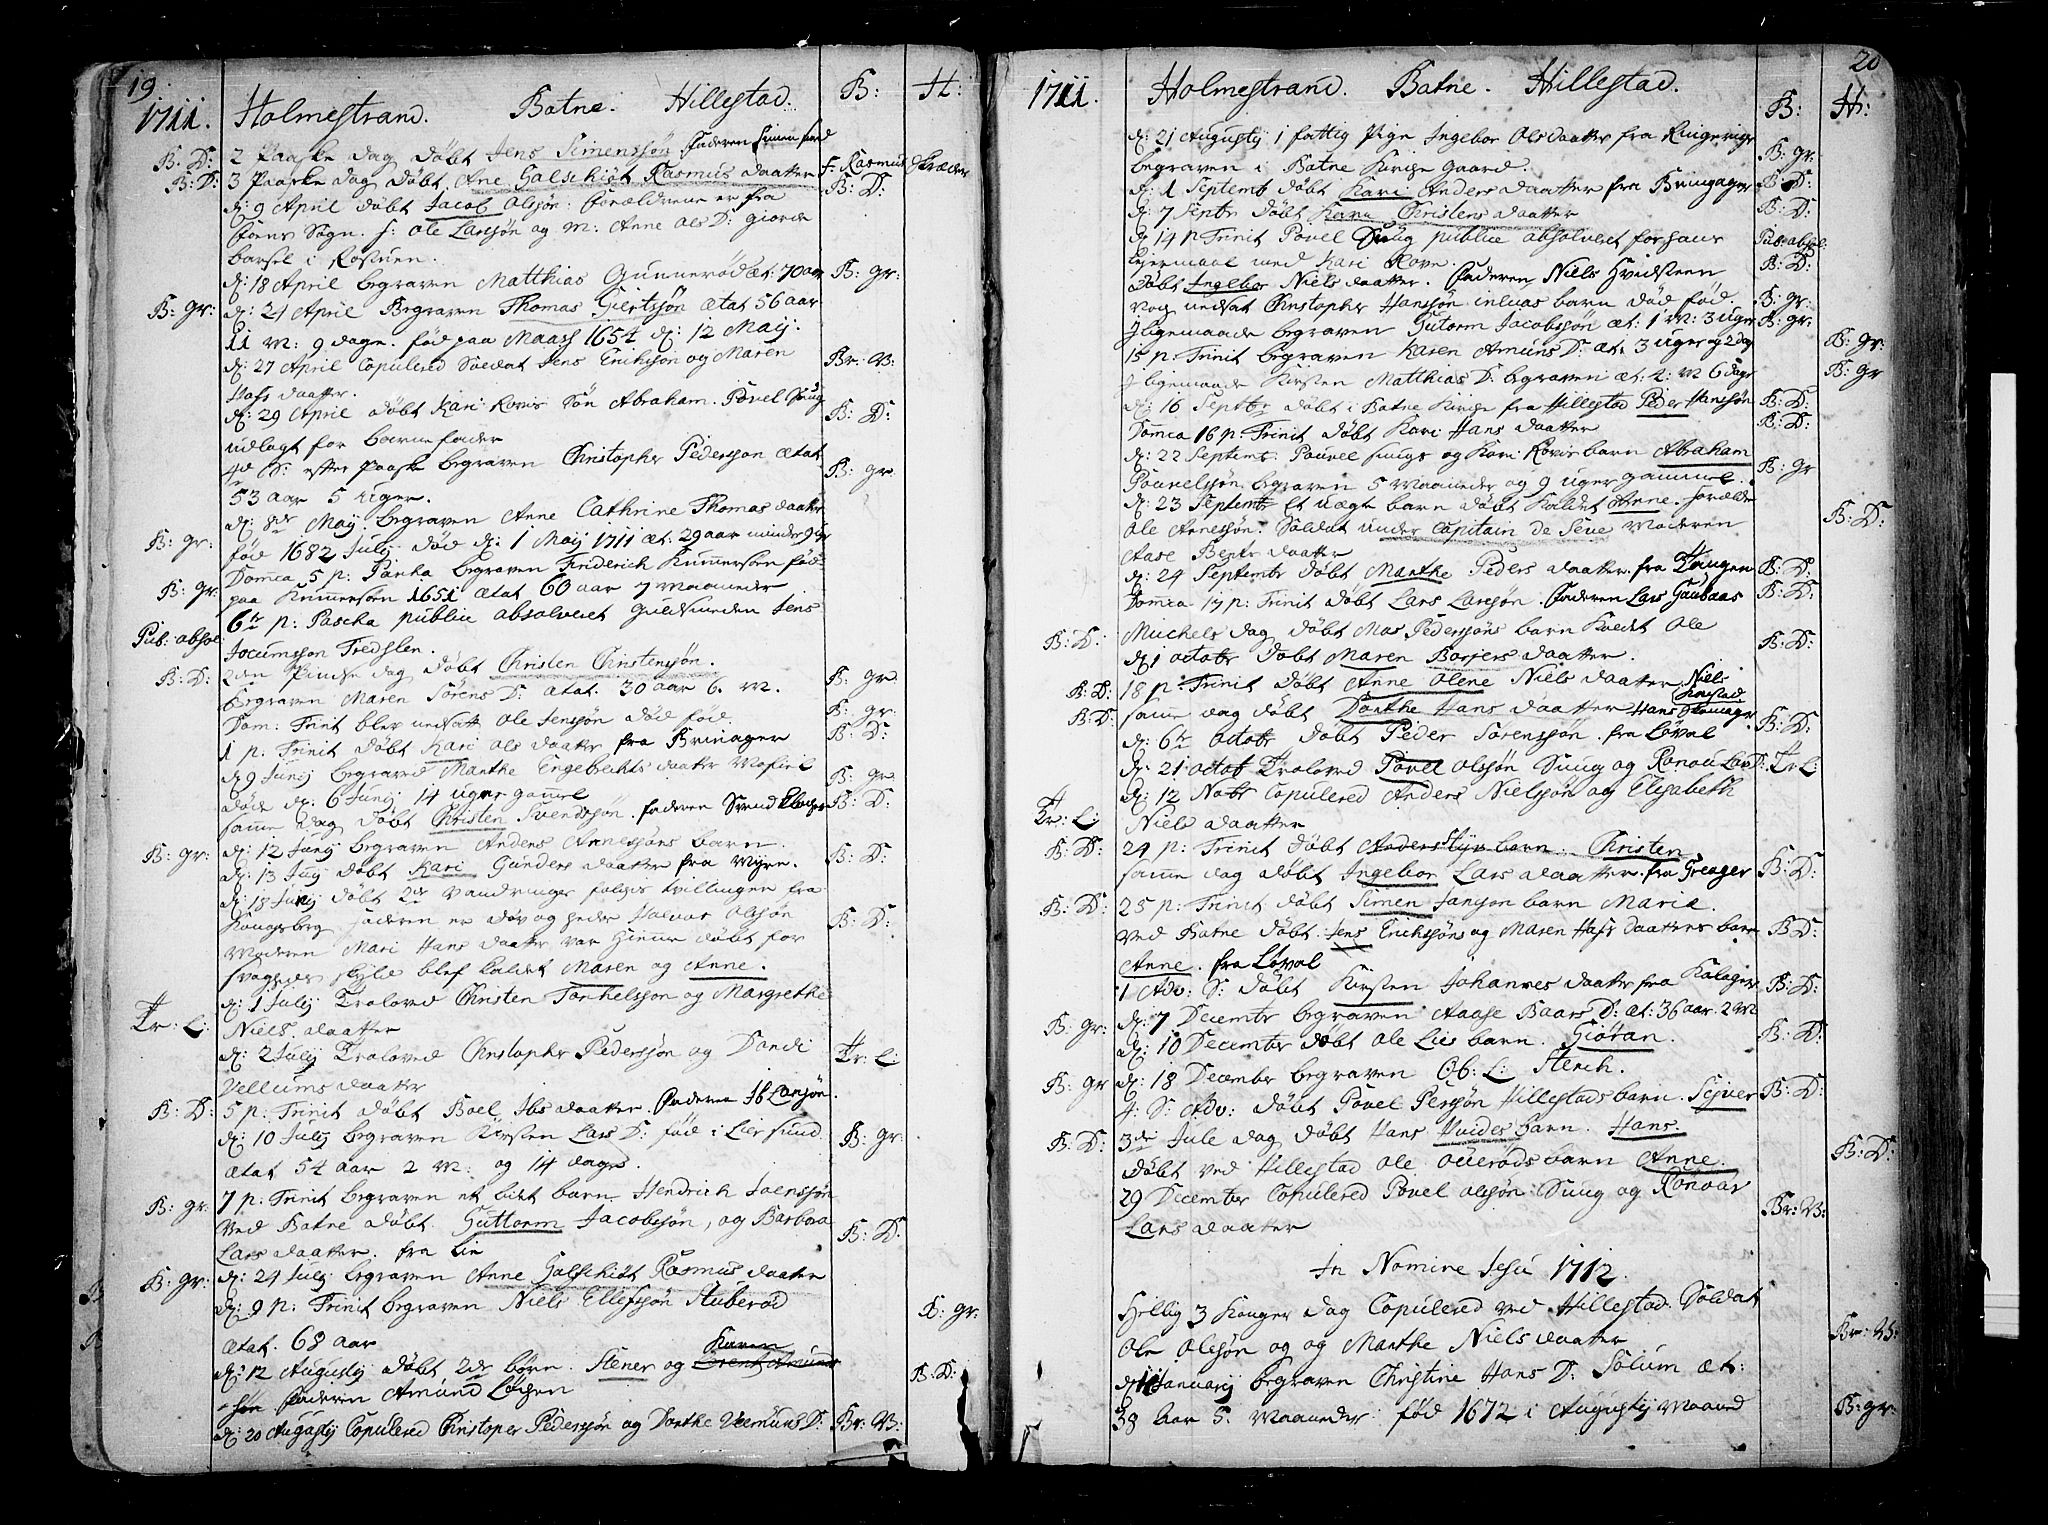 19.
1711. Holmestrand. Botne. Hillestad. B: H:
B. D: 2 Paaske dag døbt Jens Simenssøn Faderen Simen
B: D: 3 Paaske dag døbt Ane Galschiøt Rasmus daatter f. Rasmus Skræder
d: 9 April døbt Jacob Olssøn. Forældrene er fra B: D:
Sogn. f: Ole Larssøn og M: Anne Ols D: giorde
barsel i
d: 18 April begraven Matthias Gunnerød æt: 70 aar B: gr:
B: gr: d: 24 April Begraven Thomas Giertssøn ætat 56 aar
11 M: 9 dage. fød paa Maass 1654 d: 12 Maij.
d: 27 April Copulered Soldat Jens Erichssøn og Maren Br: V:
Hafs daatter.
d: 29 April døbt Kari Rovis Søn Abraham. Povel Snug B: D:
udlagt for barne fader
4de S: efter Paaske begraven Christopher Pederssøn ætat B: gr:
53 aar 5 uger.
B: gr: d: 8de Maij begraven Anne Cathrine Thomas daatter
fød 1682 July død d: 1 Maij 1711 æt: 29 aar minder
Domca 5 p: Pascha begraven Friderich Kummersøen fød
B: gr: paa Kummersøen 1651 ætat 60 aar 7 Maaneder
Pub: absol: 6te p: Pascha publice absolveret guldsmeden Jens
Jocumssøn Fredslen.
B: D: 2den Pindse dag døbt Christen Christenssøn.
begraven Maren Sørens D: ætat. 30 aar 6. M. B: gr.
Dom: Trinit blev nedsatt Ole Jenssøn død fød. B: gr:
1 p: Trinit døbt Kari Ols daatter fra Brinager B: D:
d 9 Junij begraved Marthe Engebrechts daatter B: gr.
døde d: 6 Junij 14 uger gammel
samme dag døbt Christen Svendssøn. faderen Svend B: D:
B: gr: d: 12 Junij begraven Anders Annessøns barn.
d: 13 Junij døbt Kari Gunders daatter fra Myren. B: D:
d: 18 Junij døbt 2de Vandringes folkis tvillinger fra
Kongsberg faderen er død og heder Halvor Olssøn B: D:
Moderen Mari Hans daatter var hiemme døbt for
svagheds skyld blef kaldet Maren og Anne.
d: 1 July Trolovet Christen Torkelssøn og Margrethe
Tr: L: Niels daatter
d: 2 July Troloved Christopher Pederssøn og Dordi Tr: L:
Vellums daatter
B: D: 5 p: Trinit døbt Boel Ibs daatter Faderen Ib Larssøn.
d: 10 July begraven Kirsten Lars D: fød i Lier sund B: gr:
ætat 54 aar 2 M: og 14 dage.
B: gr: 7 p: Trinit begraven et lidt barn Hendrich Joenssøn
ved Botne døbt Guttorm Jacobssøn, og Barbora B: D:
Lars daatter. fra Lie
B: gr: d: 24 July begraven Anne Galschiøt Rasmus daatter
d: 9 p: Trinit begraven Niels Ellefssøn Stuberød
ætat. 68 aar B: gr:
Karen
d: 12 Augustij døbt 2de børn. Stener og
søn Faderen Amund B: D:
d: 20 Augustij Copulered Christoper Pederssøn og Dorthe Vermunds D: Br: V:
20
1711. Holmestrand. Botne. Hillestad. B: H:
d: 21 Augustij 1 fattig Pige Ingebor Ols daatter fra Ringerige
begraven i Botne Kirche Gaard. B: gr:
d: 1 Septemb døbt Kari Anders daatter fra Bringager B: D:
d: 7 Septbr døbt Kari Christens daatter B: D:
d: 14 p Trinit Povel Snug publice absolveret for hans Pub: absol:
lejermaal med Kari Rove.
døbt Ingebor Niels daatter. Faderen Niels Hvidsteen B: D:
nedsat Christopher Hanssøn barn død fød. B: gr:
Jligemaade begraven Gutorm Jacobssøn æt: 1 M: 3 uger B: gr:
15 p: Trinit begraven Karen Amunds D: æt: 3 uger og 2 dage B: gr:
J ligemaade Kirsten Matthias D: begraven æt: 4: M 6 dage B: gr
d: 16 Septbr døbt i Botne Kirche fra Hillestad Peder Hanssøn B: D:
Domca 16 p: Trinit døbt Kari Hans daatter B: D:
d: 22 Septemb: Pouvel Snugs og Kari Rovis barn Abraham
Pouvelssøn begraven 5 Maaneder og 9 uger gammel. B: gr
d: 23 Septembr Et uægte barn døbt kaldet Anne. forælder
Ole Arnessøn. Soldat under Capitain de Seue Moderen B: D:
Aase Bents daatter
d: 24 Septembr døbt Marthe Peders daatter fra Haugen B: D:
Domca 17 p: Trinit døbt Lars Larssøn. Faderen Lars Gaubaas B: D:
B: D: Michels dag døbt Mas Pederssøns barn Kaldet Ole
d: 1 octobr døbt Maren Borgers daatter. B: D:
B: D: 18 p: Trinit døbt Anne Olene Niels daatter Niels
B: D: samme dag døbt Dorthe Hans daatter Hans
d: 6te octobr døbt Peder Sørenssøn. fra Løval B: D:
d: 21 octob Troloved Povel Olssøn Snug og Ronou Lars D: Tr: L:
d: 12 Nobr Copulered Anders Nielssøn og Elisabeth
Tr: L: Niels daatter
B: D: 24 p: Trinit døbt Anders Styr barn. Christen
samme dag døbt Ingebor Lars daatter. fra Greager B: D:
B: D: 25 p: Trinit døbt Simen Janssøn barn Marie.
ved Botne døbt. Jens Erichssøns og Maren Hafs daatters barn B: D:
Anne. fra Løval
1 Adv: S: døbt Kirsten Johannes daatter fra Kalager B: D:
B: gr: d: 7 Decembr begraven Aaase Baars D: æt: 36 aar. 2 M
d: 10 Decembr døbt Ole Lies barn. Giøran. B: D:
B: gr d: 18 Decembr begraven Ob: L: Sterch.
4: S: Adv: døbt Povel Perssøn Hillestads barn. Sejver B: D:
B: D: 3de Jule dag døbt Hans Hvides barn. Hans.
døbt ved Hillestad Ole Ouerøds barn Anne. B: D:
29 Decembr Copulered Povel Olssøn Snug og Ronoar
Lars daatter Br: V:
In Nomine Jesu 1712.
Hellig 3 Konger dag Copulered ved Hillestad. Soldat
Ole Olssøn og og Marthe Niels daatter Br: V:
d: 11 Januarij begraven Christine Hans D: Solum æt:
38 Aar 5. Maaneder. fød 1672 i Augustij Maaned B: gr: